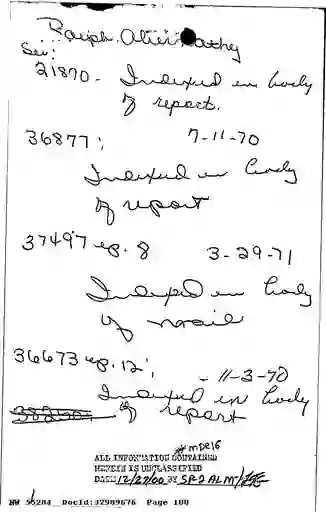 Ralph Abernathy
See:
21870 - Indexed in body
of report.
36877; 7-11-70
Indexed in body
of report
37497 ep. 8 3-29-71
Indexed in body
of mail
36673 ep. 12; - 11-3-70
Indexed in body
of report
# MDR16
ALL INFORMATION CONTAINED
HEREIN IS UNCLASSIFIED
DATE 12/27/00 BY SP-2 ALM
NW 55284 DocId:32989676 Page 100